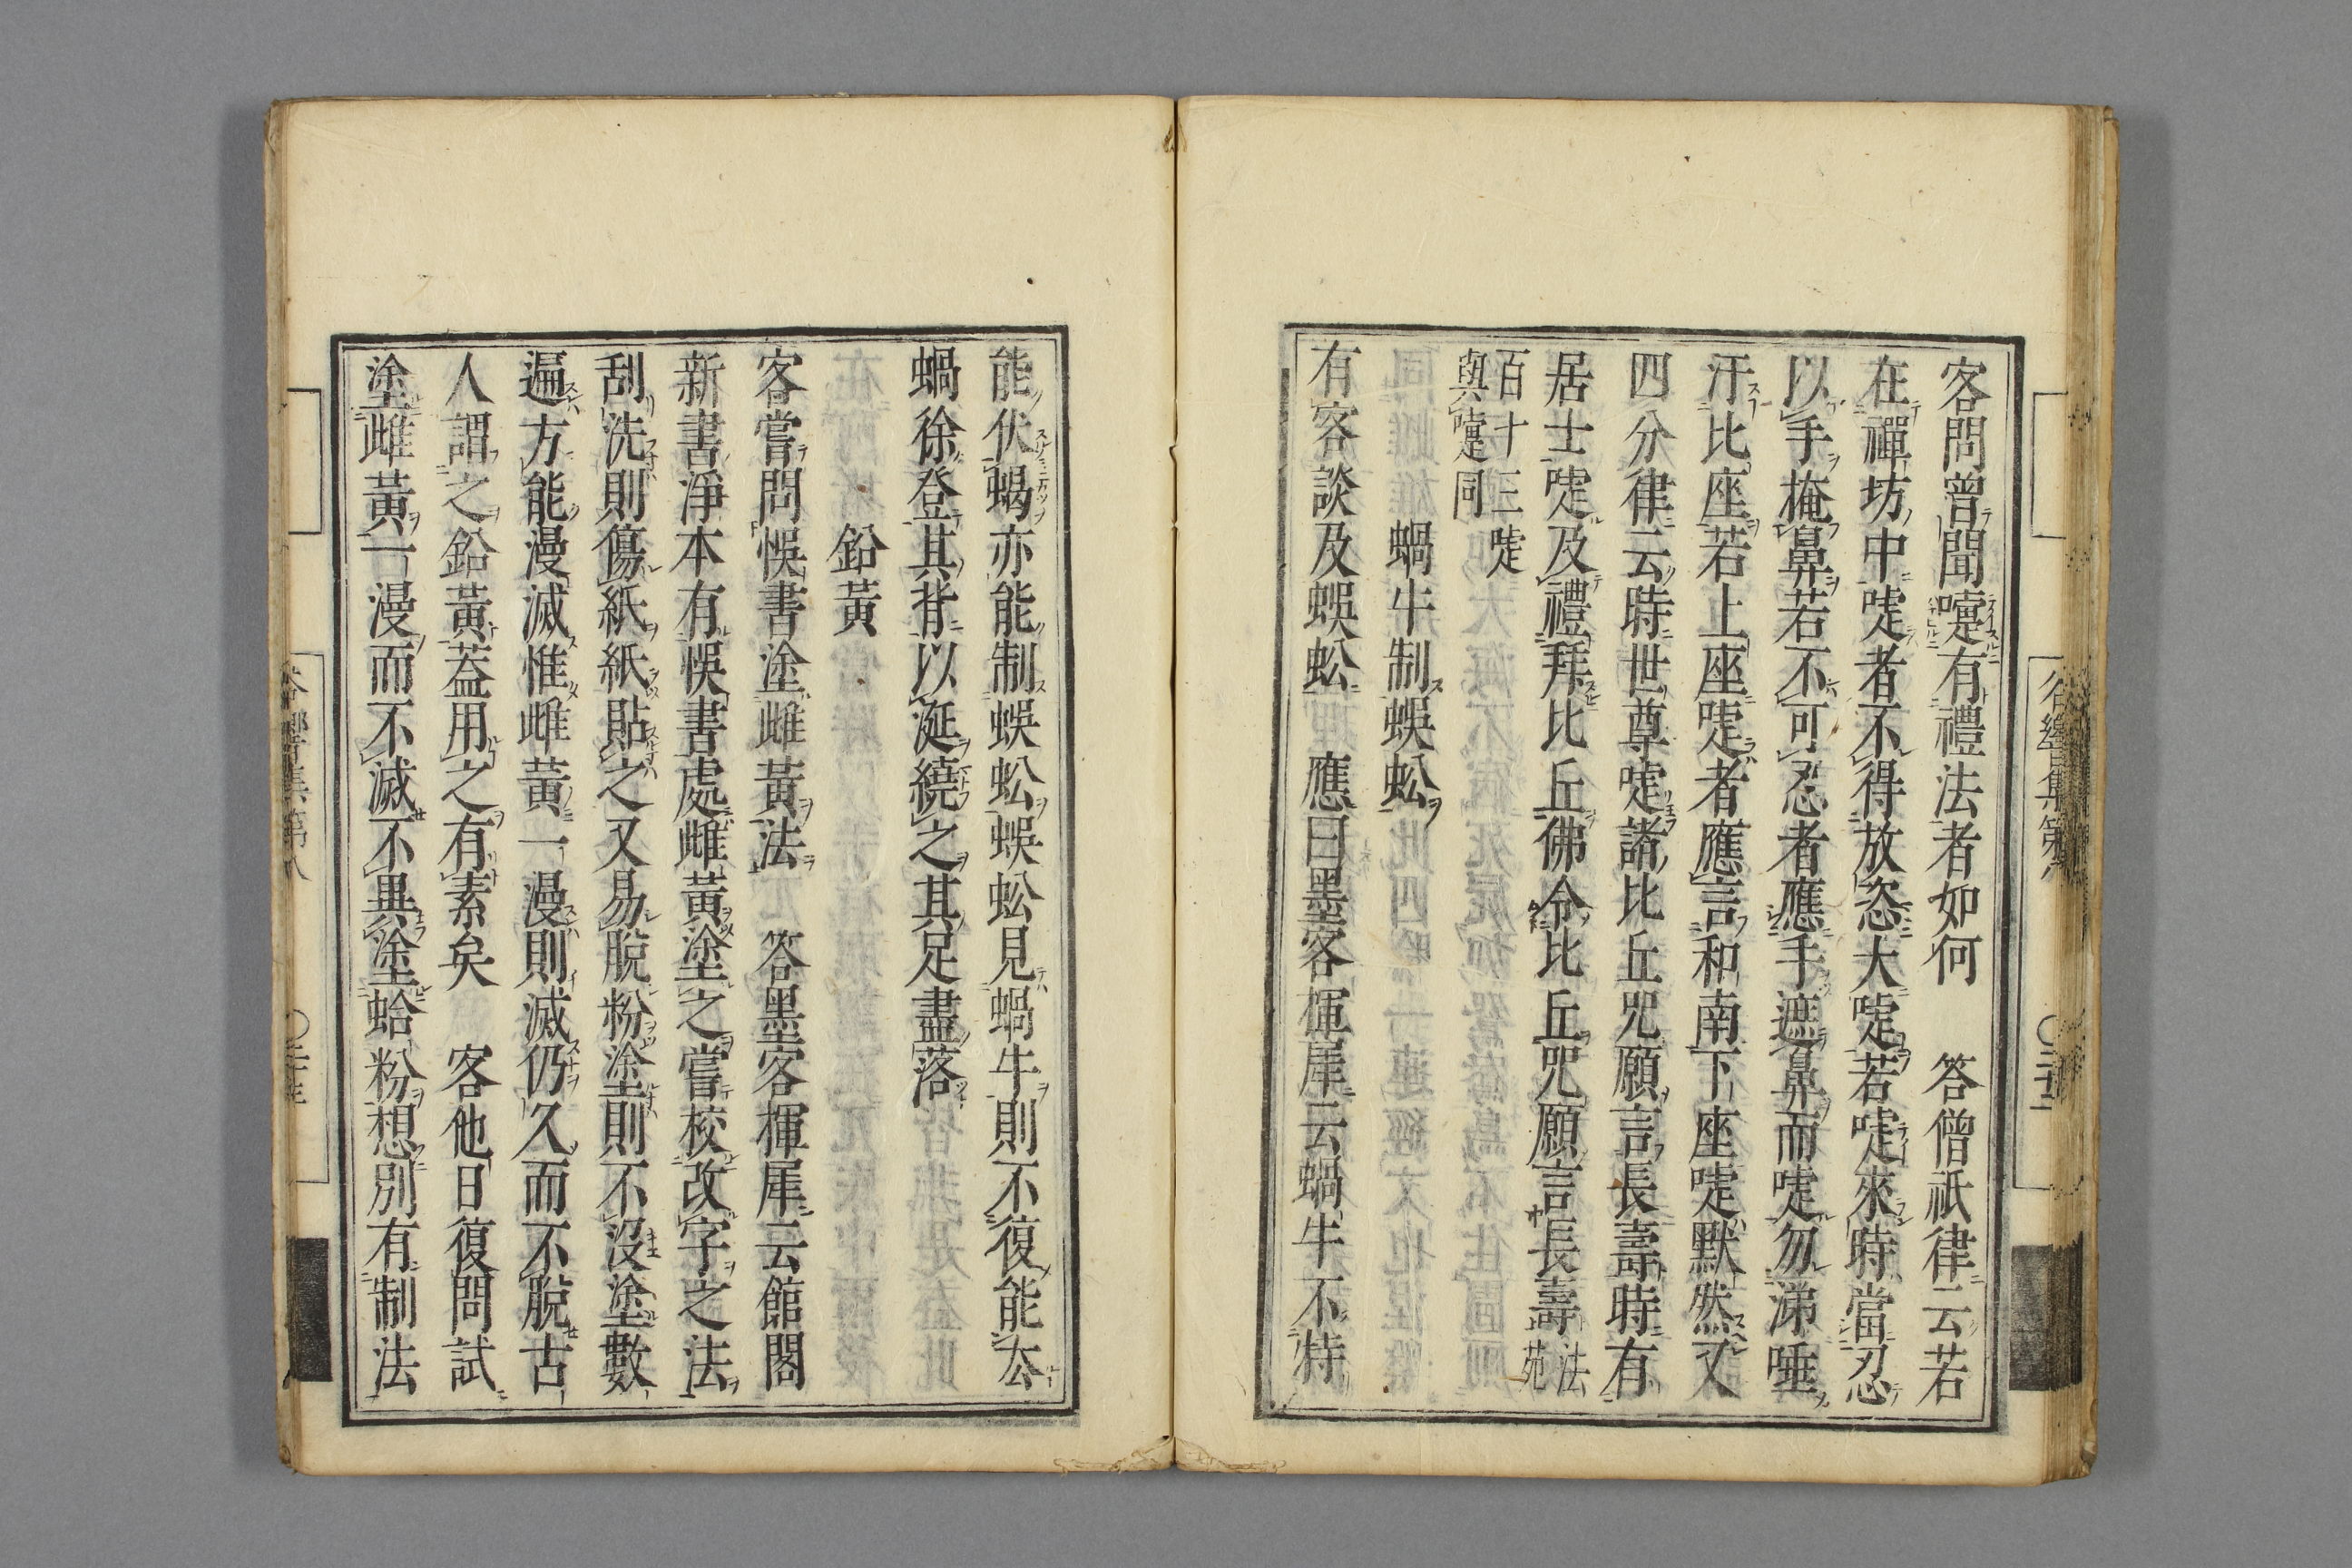 客問曾聞嚏有禮法者如何　答僧祇律云若
在禪坊中啑者不得放恣大啑若啑來時當忍
以手掩鼻若不可忍者應手遮鼻而啑勿涕唾
汙比座若上座啑者應言和南下座啑默然又
四分律云時世尊啑諸比丘咒願言長壽時有
居士啑及禮拜比丘佛令比丘咒願言長壽法苑
百十三啑
與嚏同
蝸牛制蜈蚣
有客談及蜈蚣　應曰墨客揮犀云蝸牛不特
能伏蝎亦能制蜈蚣蜈蚣見蝸牛則不復能去
蝸徐登其背以涎繞之其足盡落
鉛黃
客嘗問悞書塗雌黃法　答墨客揮犀云館閣
新書淨本有悞書處雌黃塗之嘗校改字之法
刮洗則傷紙紙貼之又易脫粉塗則不沒塗數
遍方能漫滅惟雌黃一漫則滅仍久而不脫古
人謂之鉛黃蓋用之有素矣　客他日復問試
塗雌黃一漫而不滅不異塗蛤粉想別有制法
谷響集第八